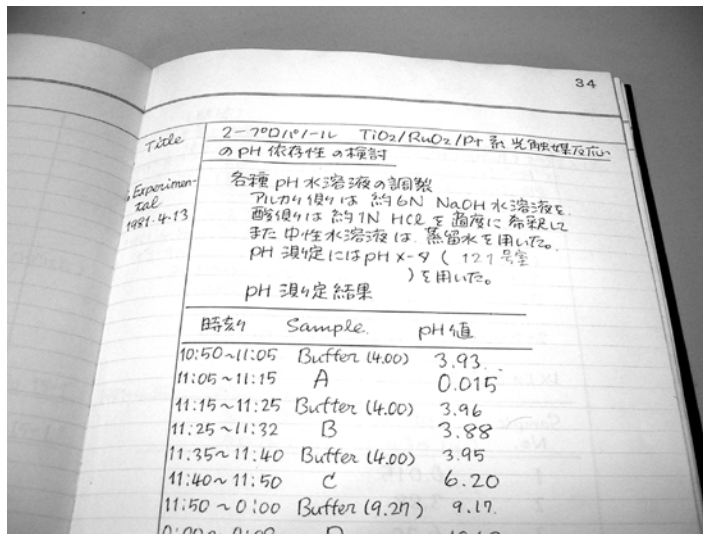 34
Title
2-プロパノール TiO2/RuO2/Pt系 光触媒反応
のpH依存性の検討
Experimen-
tal
1981.4.13
各種pH水溶液の調製
アルカリ側は約6N NaOH水溶液を、
酸側は約1N HClを適度に希釈して
また中性水溶液は、蒸留水を用いた。
pH測定にはpHメータ(121号室
)を用いた。
pH測定結果
時刻 Sample. pH値
10:50~11:05 Buffer (4.00) 3.93.
11:05~11:15 A 0.015
11:15~11:25 Buffer (4.00) 3.96
11:25~11:32 B 3.88
11:35~11:40 Buffer (4.00) 3.95
11:40~11:50 C 6.20
11:50~0:00 Buffer (9.27) 9.17.